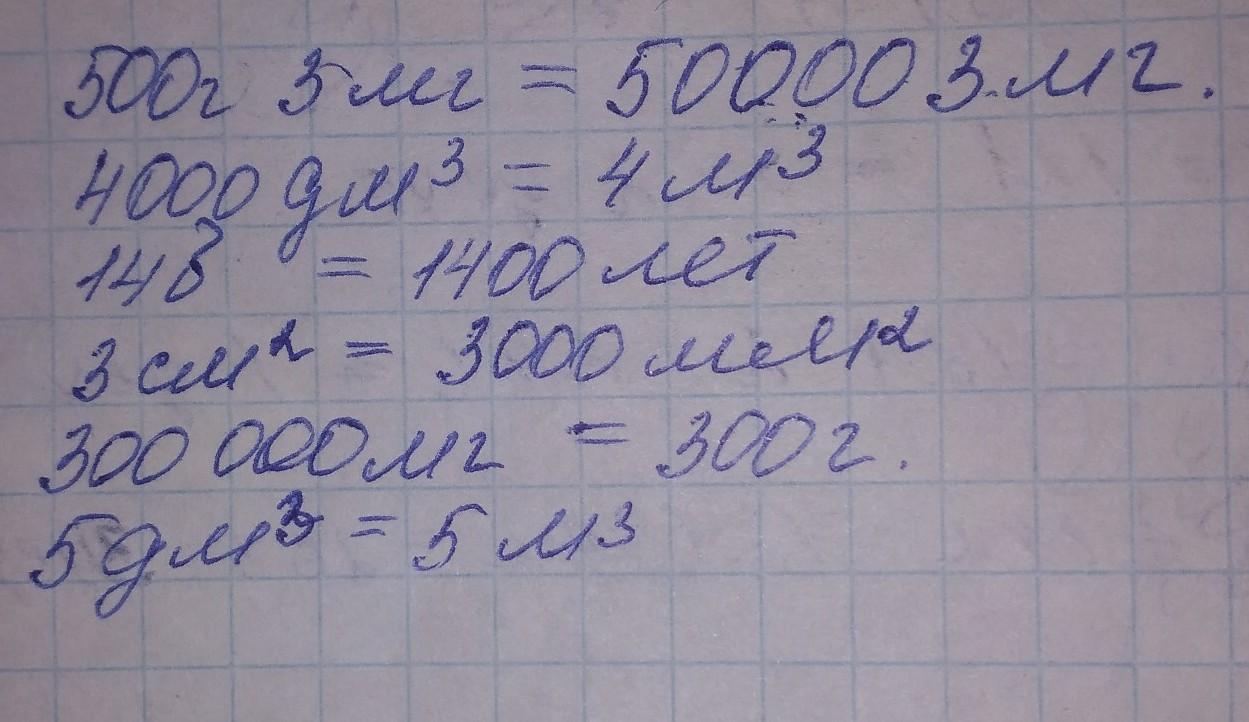 500г 3 мг = 500003 мг.
4000 дм³ = 4 м³
14 в = 1400 лет
3 см² = 3000 мм²
300 000 мг = 300 г.
5 дм³ = 5 м³